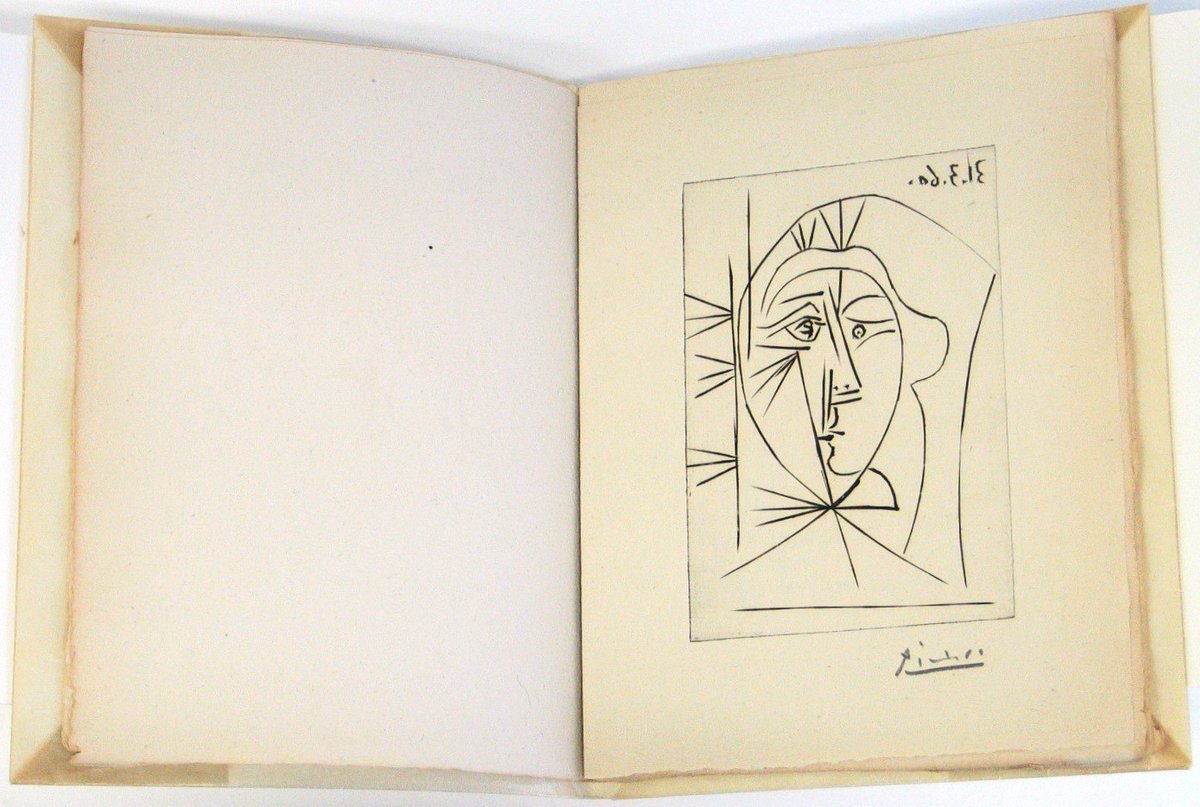 31.3.60.
Picasso